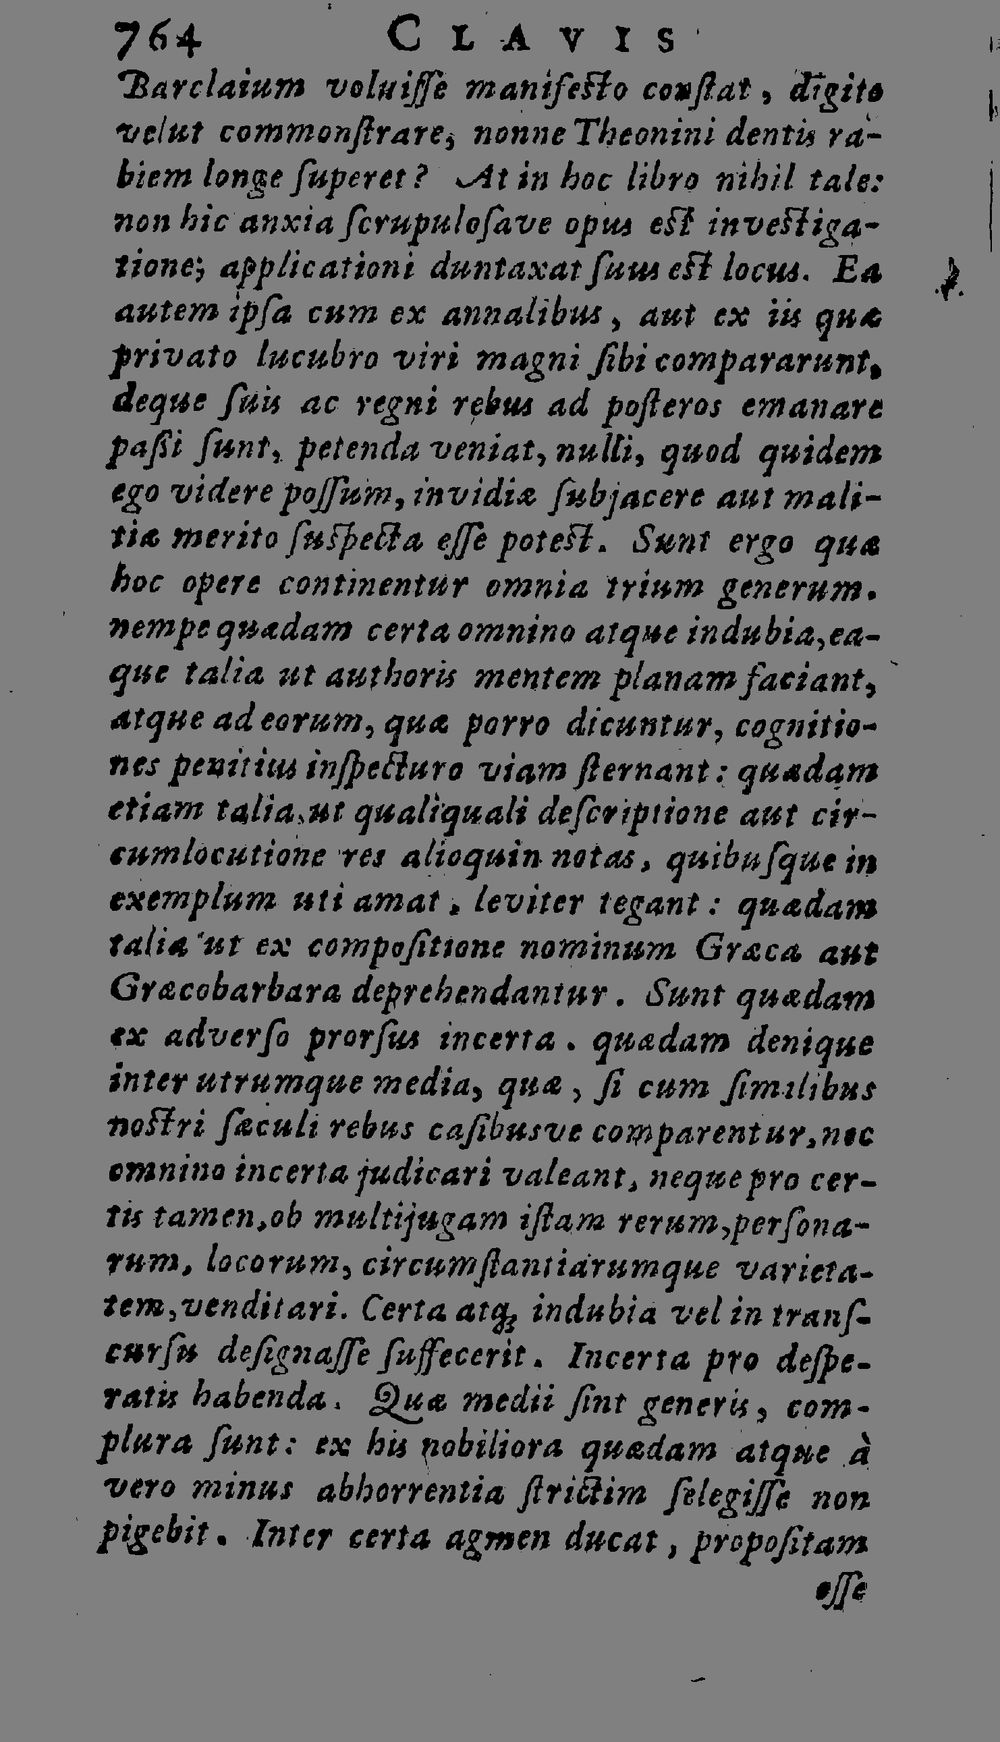 764 CLAVIS
Barclaium voluiſſe manifesto conſtat, digito
velut commonſtrare, nonne Theonini dentis ra-
biem longe ſuperet? At in hoc libro nihil tale:
non hic anxia ſcrupuloſave opus est investiga-
tione; applicationi duntaxat ſuus est locus. Ea
autem ipſa cum ex annalibus, aut ex iis quæ
privato lucubro viri magni ſibi compararunt,
deque ſuis ac regni rebus ad poſteros emanare
paſsi ſunt, petenda veniat, nulli, quod quidem
ego videre poſſum, invidiæ ſubjacere aut mali-
tiæ merito ſuspecta eſſe potest. Sunt ergo quæ
hoc opere continentur omnia trium generum.
nempe quædam certa omnino atque indubia, ea-
que talia ut authoris mentem planam faciant,
atque ad eorum, quæ porro dicuntur, cognitio-
nes penitius inſpecturo viam ſternant: quædam
etiam talia, ut qualiquali deſcriptione aut cir-
cumlocutione res alioquin notas, quibuſque in
exemplum uti amat, leviter tegant: quædam
talia ut ex compoſitione nominum Græca aut
Græcobarbara deprehendantur. Sunt quædam
ex adverſo prorſus incerta. quædam denique
inter utrumque media, quæ, ſi cum ſimilibus
nostri ſæculi rebus caſibusve comparentur, nec
omnino incerta judicari valeant, neque pro cer-
tis tamen, ob multijugam iſtam rerum, perſona-
rum, locorum, circumſtantiarumque varieta-
tem, venditari. Certa atq; indubia vel in tranſ-
curſu deſignaſſe ſuffecerit. Incerta pro deſpe-
ratis habenda. Quæ medii ſint generis, com-
plura ſunt: ex his nobiliora quædam atque à
vero minus abhorrentia ſtrictim ſelegiſſe non
pigebit. Inter certa agmen ducat, propoſitam
eſſe